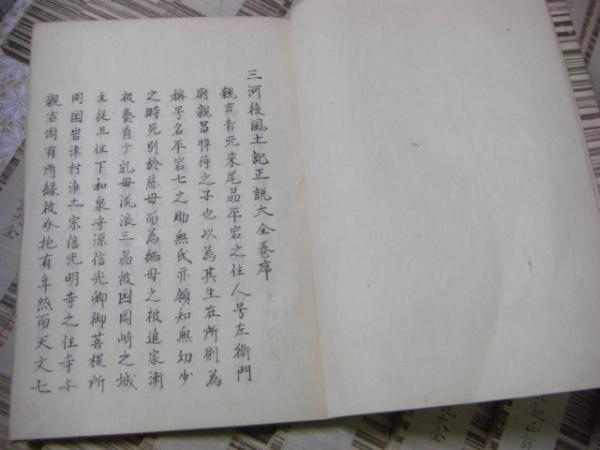 三河後風土記正説大全巻序
親吉者元来尾刕平岩之住人号左衛門
尉親昌悴侍之子也以為其生在所則為
称号名平岩七之助無氏亦領知無幼少
之時死別於慈母而為継母之被追家漸
被養育于乳母流浪三刕彼国岡崎之城
主従三位下和泉守源信光卿御菩提所
同国岩津村浄土宗信光明寺之住寺
親吉因有所縁被介抱有年然而天文七
大全